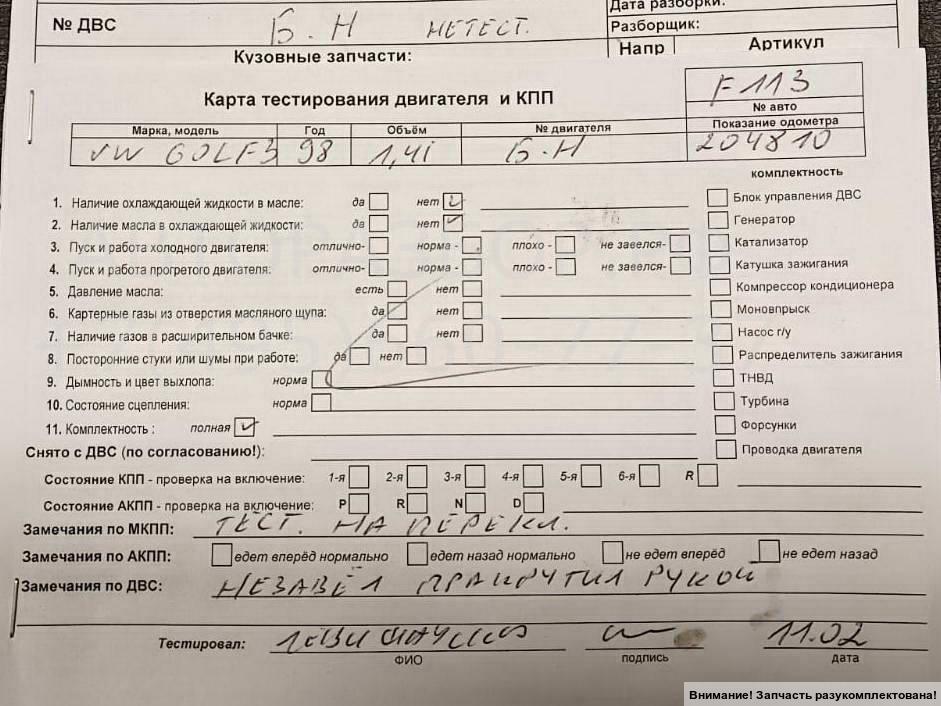 Дата разборки:
№ ДВС Б.Н НЕТЕСТ.
Разборщик:
Кузовные запчасти: Напр Артикул
Карта тестирования двигателя и КПП
F113
№ авто
Марка, модель Год Объём № двигателя Показание одометра
VW GOLF3 98 1,4i Б.Н 204810
комплектность
1. Наличие охлаждающей жидкости в масле: да нет Блок управления ДВС
2. Наличие масла в охлаждающей жидкости: да нет Генератор
3. Пуск и работа холодного двигателя: отлично- норма - плохо - не завелся- Катализатор
4. Пуск и работа прогретого двигателя: отлично- норма - плохо - не завелся- Катушка зажигания
5. Давление масла: есть нет Компрессор кондиционера
6. Картерные газы из отверстия масляного щупа: да нет Моновпрыск
7. Наличие газов в расширительном бачке: да нет Насос г/у
8. Посторонние стуки или шумы при работе: да нет Распределитель зажигания
9. Дымность и цвет выхлопа: норма ТНВД
10. Состояние сцепления: норма Турбина
11. Комплектность : полная Форсунки
Снято с ДВС (по согласованию!): Проводка двигателя
Состояние КПП - проверка на включение: 1-я 2-я 3-я 4-я 5-я 6-я R
Состояние АКПП - проверка на включение: P R N D
Замечания по МКПП: ТЕСТ. НА ПЕРЕКЛ.
Замечания по АКПП: едет вперёд нормально едет назад нормально не едет вперёд не едет назад
Замечания по ДВС: НЕЗАВЁЛ ПРАКРУТИЛ РУКОЙ
Тестировал: 11.02
ФИО подпись дата
Внимание! Запчасть разукомплектована!